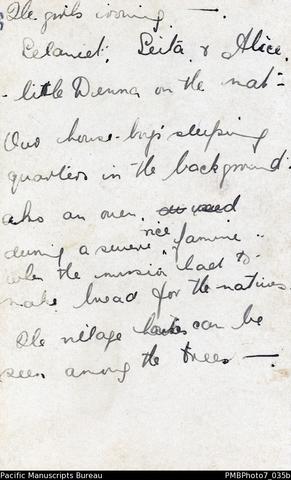 The girls ironing —.
Eelamet, Seita, & Alice.
- little Dienna on the mat -
Our house-boys sleeping
quarters in the background.
also an oven, as used
during a severe rice "famine"
when the mission had to
make bread for the natives.
The village houses can be
seen among the trees —.
Pacific Manuscripts Bureau
PMBPhoto7_035b